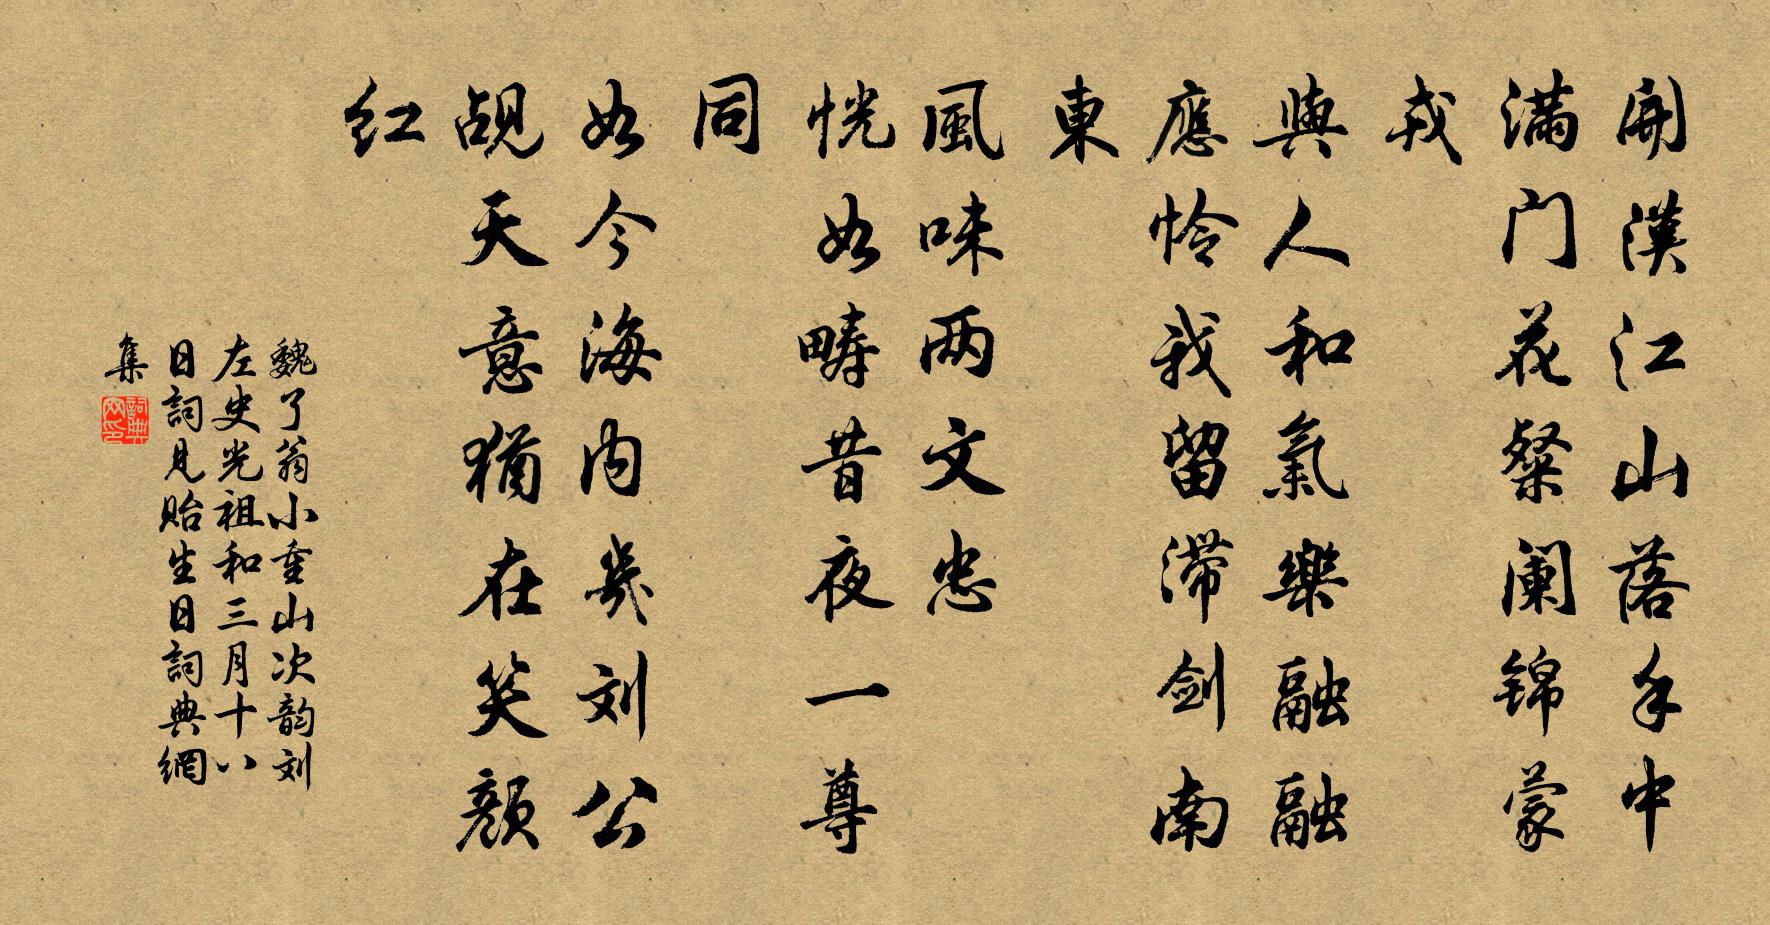 開漢江山落手中
满门花粲阑锦蒙
戎
與人和氣樂融融
應怜我留滞剑南
東
風味两文忠
恍如畴昔夜一尊
同
如今海内幾刘公
觇天意猶在笑顔
红
魏了翁小重山次韵刘
左史光祖和三月十八
日詞見貽生日詞典網
集
詞典网印